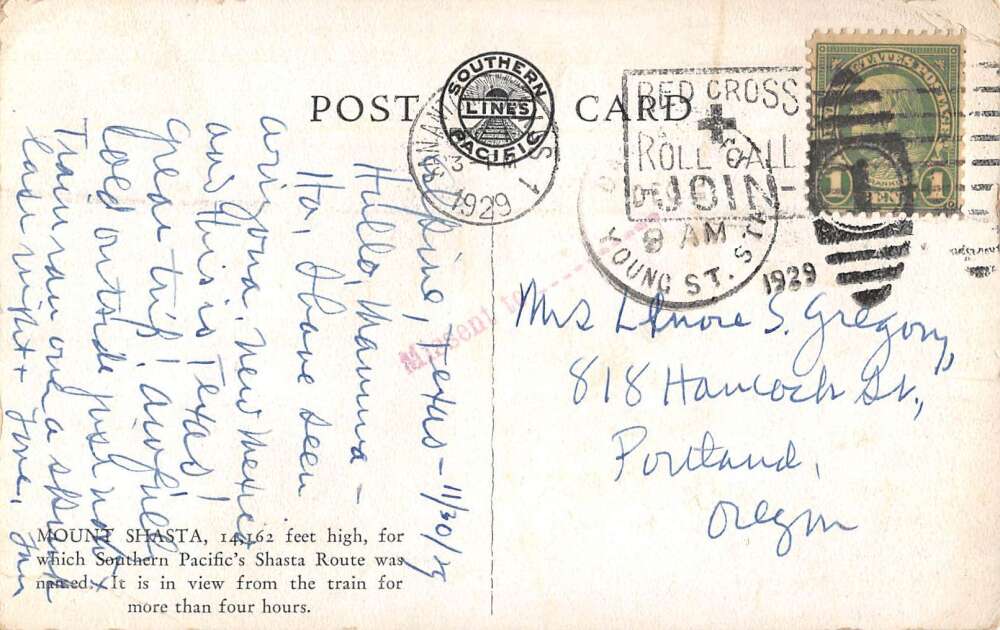 POST CARD
SOUTHERN
LINES
PACIFIC
1929
RED CROSS
ROLL CALL
JOIN
9 AM
YOUNG ST. STA
1929
1 1
Missent to
Alpine, Texas – 11/30/29
Hello, Mamma –
Ha, I have seen
arizona, new mexico
and this is Texas!
Great trip! awfully
cold outside just now +
Train ran over a skunk
last night + Love,
Mrs Lenore S. Gregory,
818 Hancock St.,
Portland,
Oregon
MOUNT SHASTA, 14,162 feet high, for
which Southern Pacific's Shasta Route was
named. It is in view from the train for
more than four hours.